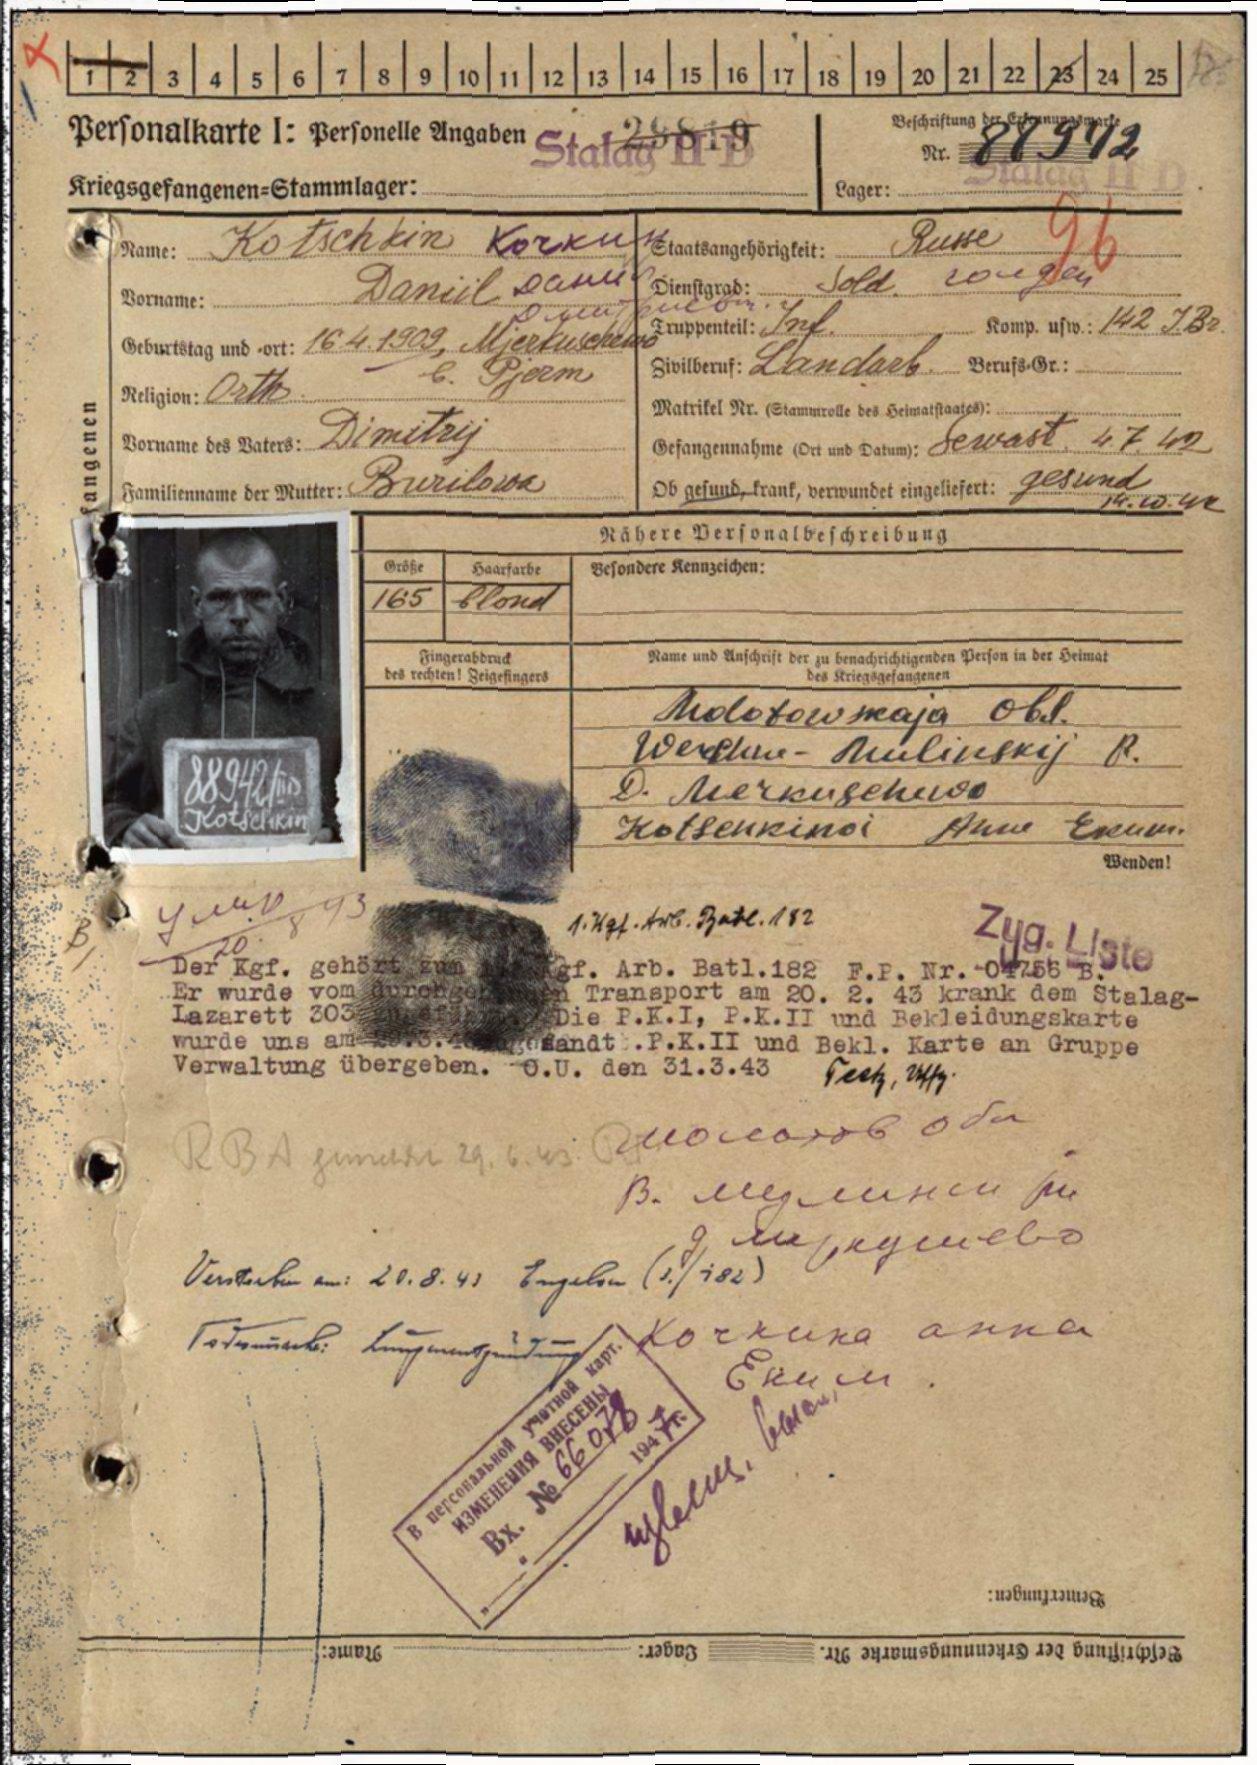 1 2 3 4 5 6 7 8 9 10 11 12 13 14 15 16 17 18 19 20 21 22 23 24 25
Personalkarte I: Personelle Angaben
Stalag II D
Kriegsgefangenen=Stammlager:
Beschriftung der Erkennungsmarke
Nr. 88942
Lager: Stalag II D
96
Name: Kotschkin Кочкин
Vorname: Daniil Данил
Geburtstag und -ort: 16.4.1909, Mjerkuschewo
b. Pjerm
Religion: Orth.
Vorname des Vaters: Dimitrij
Familienname der Mutter: Burilowa
Staatsangehörigkeit: Russe
Dienstgrad: Sold. солдат
Truppenteil: Inf. Komp. usw.: 142 J.Br.
Zivilberuf: Landarb. Berufs=Gr.:
Matrikel Nr. (Stammrolle des Heimatstaates):
Gefangennahme (Ort und Datum): Sewast. 4.7.42
Ob gesund, krank, verwundet eingeliefert: gesund
fangenen
88942/IID
Kotschkin
Nähere Personalbeschreibung
Größe Haarfarbe Besondere Kennzeichen:
165 blond
Fingerabdruck
des rechten! Zeigefingers
Name und Anschrift der zu benachrichtigenden Person in der Heimat
des Kriegsgefangenen
Molotowskaja Obl.
Werchne-Mulinskij R.
D. Merkuschewo
Kotschkinoi Anne Ekim.
Wenden!
1. Kgf. Arb. Batl. 182
Zug. Liste
Der Kgf. gehört zum Kgf. Arb. Batl.182 F.P. Nr. 04756 B.
Er wurde vom durchgehenden Transport am 20. 2. 43 krank dem Stalag-
Lazarett 303 Die P.K.I, P.K.II und Bekleidungskarte
wurde uns am gesandt .P.K.II und Bekl. Karte an Gruppe
Verwaltung übergeben. O.U. den 31.3.43
Молотов обл
В. Мулински рн
д Меркушево
Verstorben am: 20.8.43 (1./182)
Todesursache: Lungenentzündung
Кочкина анна
Еким.
В персональной учетной карт.
ИЗМЕНЕНИЯ ВНЕСЕНЫ
Вх. № 66078
1947г.
Bemerkungen:
Beschriftung der Erkennungsmarke Nr. Lager: Name: